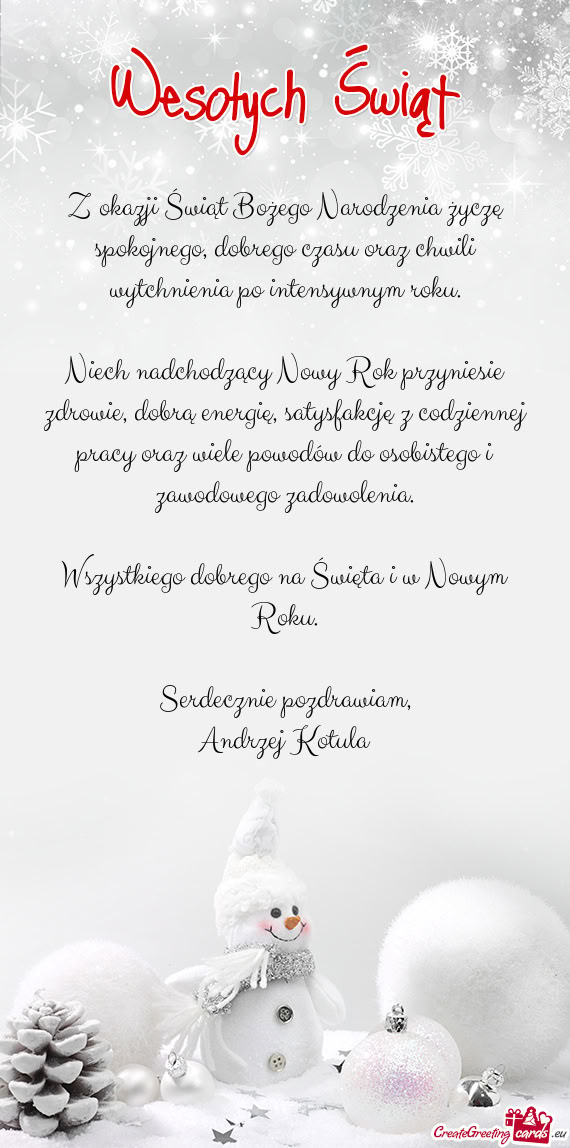 Wesołych Świąt
Z okazji Świąt Bożego Narodzenia życzę
spokojnego, dobrego czasu oraz chwili
wytchnienia po intensywnym roku.
Niech nadchodzący Nowy Rok przyniesie
zdrowie, dobrą energię, satysfakcję z codziennej
pracy oraz wiele powodów do osobistego i
zawodowego zadowolenia.
Wszystkiego dobrego na Święta i w Nowym
Roku.
Serdecznie pozdrawiam,
Andrzej Kotula
CreateGreeting cards .eu